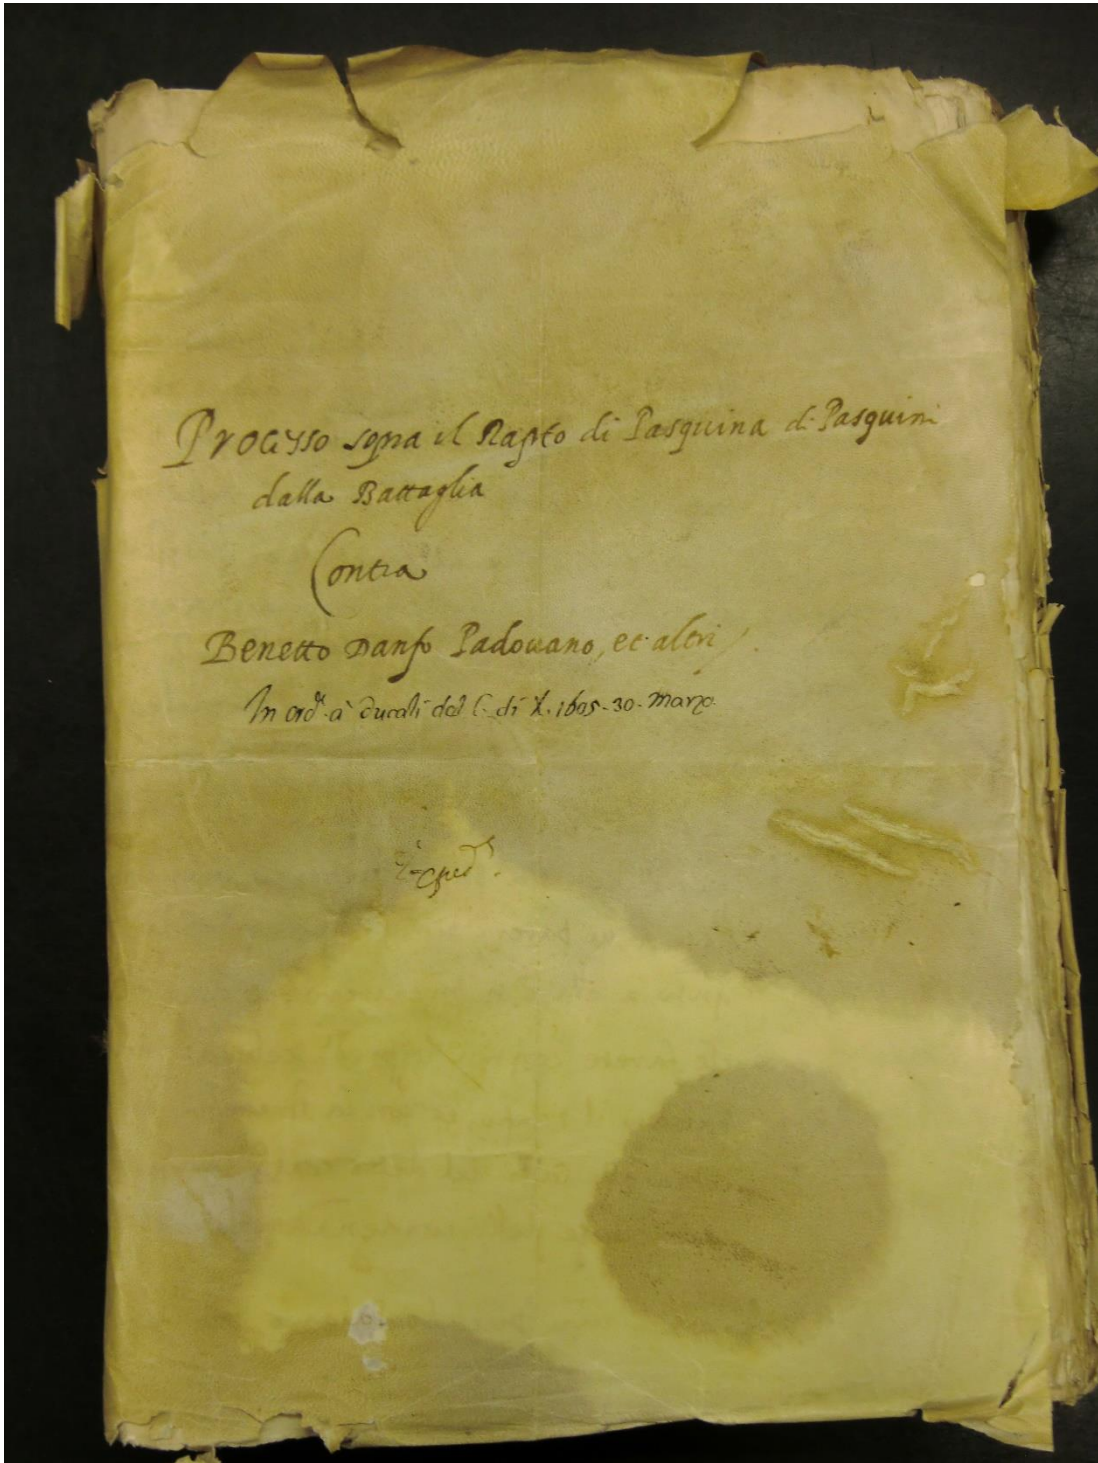 Processo sopra il Rapto di Pasquina di Pasquini
dalla Battaglia
Contra
Benetto Danfo Padouano, et altri
In ord.e à Ducali del C. di X. 1605. 30. Marzo.